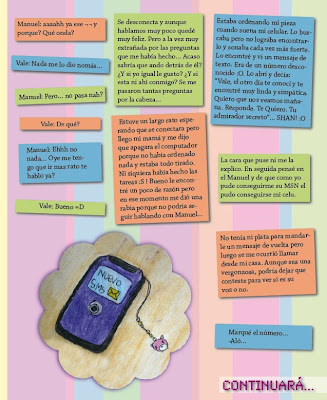 Manuel: aaaahh ya ese ¬¬ y
porque? Qué onda?
Vale: Nada me lo dio nomás...
Manuel: Pero... no pasa nah?
Vale: De qué?
Manuel: Ehhh no
nada... Oye me ten-
go que ir mas rato te
hablo ya?
Vale: Bueno =D
Se desconecta y aunque
hablamos muy poco quedé
muy feliz. Pero a la vez muy
extrañada por las preguntas
que me había hecho... Acaso
sabría que ando detrás de él?
¿Y si yo igual le gusto? ¿Y si
esta ni ahí conmigo? Se me
pasaron tantas preguntas
por la cabeza...
Estuve un largo rato espe-
rando que se conectara pero
llego mi mama y me dijo
que apagara el computador
porque no había ordenado
nada y estaba todo tirado.
Ni siquiera había hecho las
tareas :S ! Bueno le encon-
tré un poco de razón pero
en ese momento me dió una
rabia porque no podría se-
guir hablando con Manuel...
Estaba ordenando mi pieza
cuando suena mi celular. Lo bus-
caba pero no lograba encontrar-
lo y sonaba cada vez más fuerte.
Lo encontré y vi un mensaje de
texto. Era de un número desco-
nocido :O. Lo abrí y decía:
"Vale, el otro día te conocí y te
encontré muy linda y simpática.
Quiero que nos veamos maña-
na. Responde. Te Quiero. Tu
admirador secreto"... SHAN! :O
La cara que puse ni me la
explico. En seguida pensé en
el Manuel y de que como yo
pude conseguirme su MSN el
pudo conseguirse mi celu.
No tenía ni plata para mandar-
le un mensaje de vuelta pero
luego se me ocurrió llamar
desde mi casa. Aunque sea una
vergonzosa, podría dejar que
conteste para ver si es su
voz o no.
Marqué el número...
-Aló...
NUEVO
SMS
CONTINUARÁ...